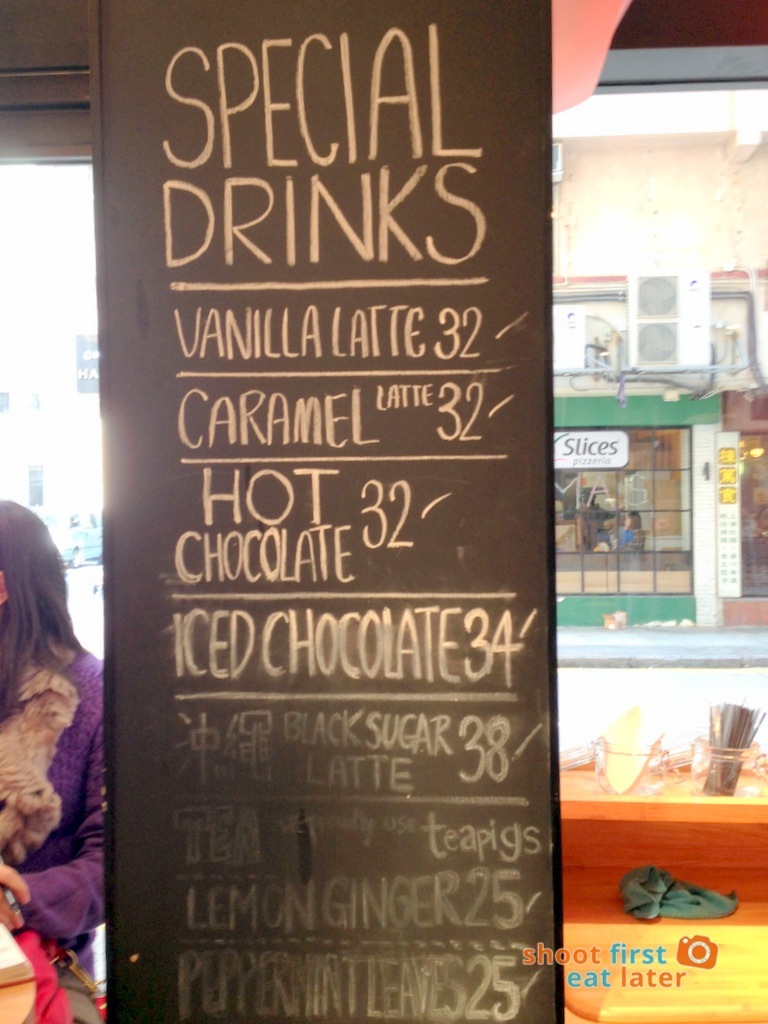 SPECIAL
DRINKS
VANILLA LATTE 32
CARAMEL LATTE 32
HOT
CHOCOLATE 32
ICED CHOCOLATE 34
沖繩 BLACK SUGAR
LATTE 38
TEA we proudly use teapigs
LEMON GINGER 25
PEPPERMINT LEAVES 25
Slices
pizzeria
shoot first
eat later